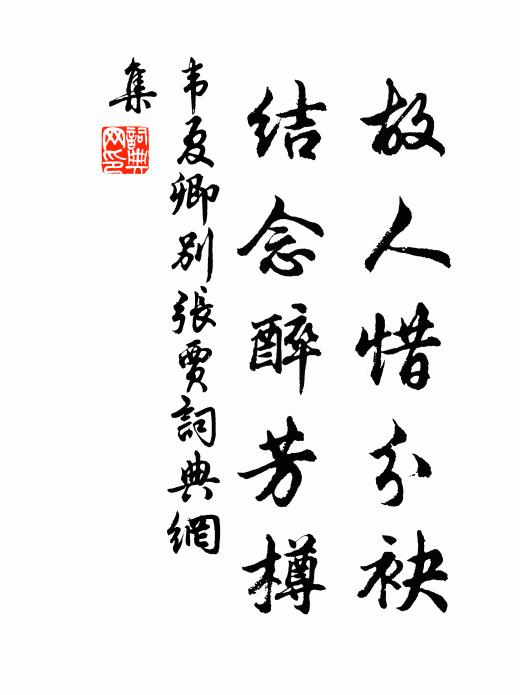 故人惜分袂
结念醉芳樽
韦夏卿别张贾詞典網
集
詞典
网印